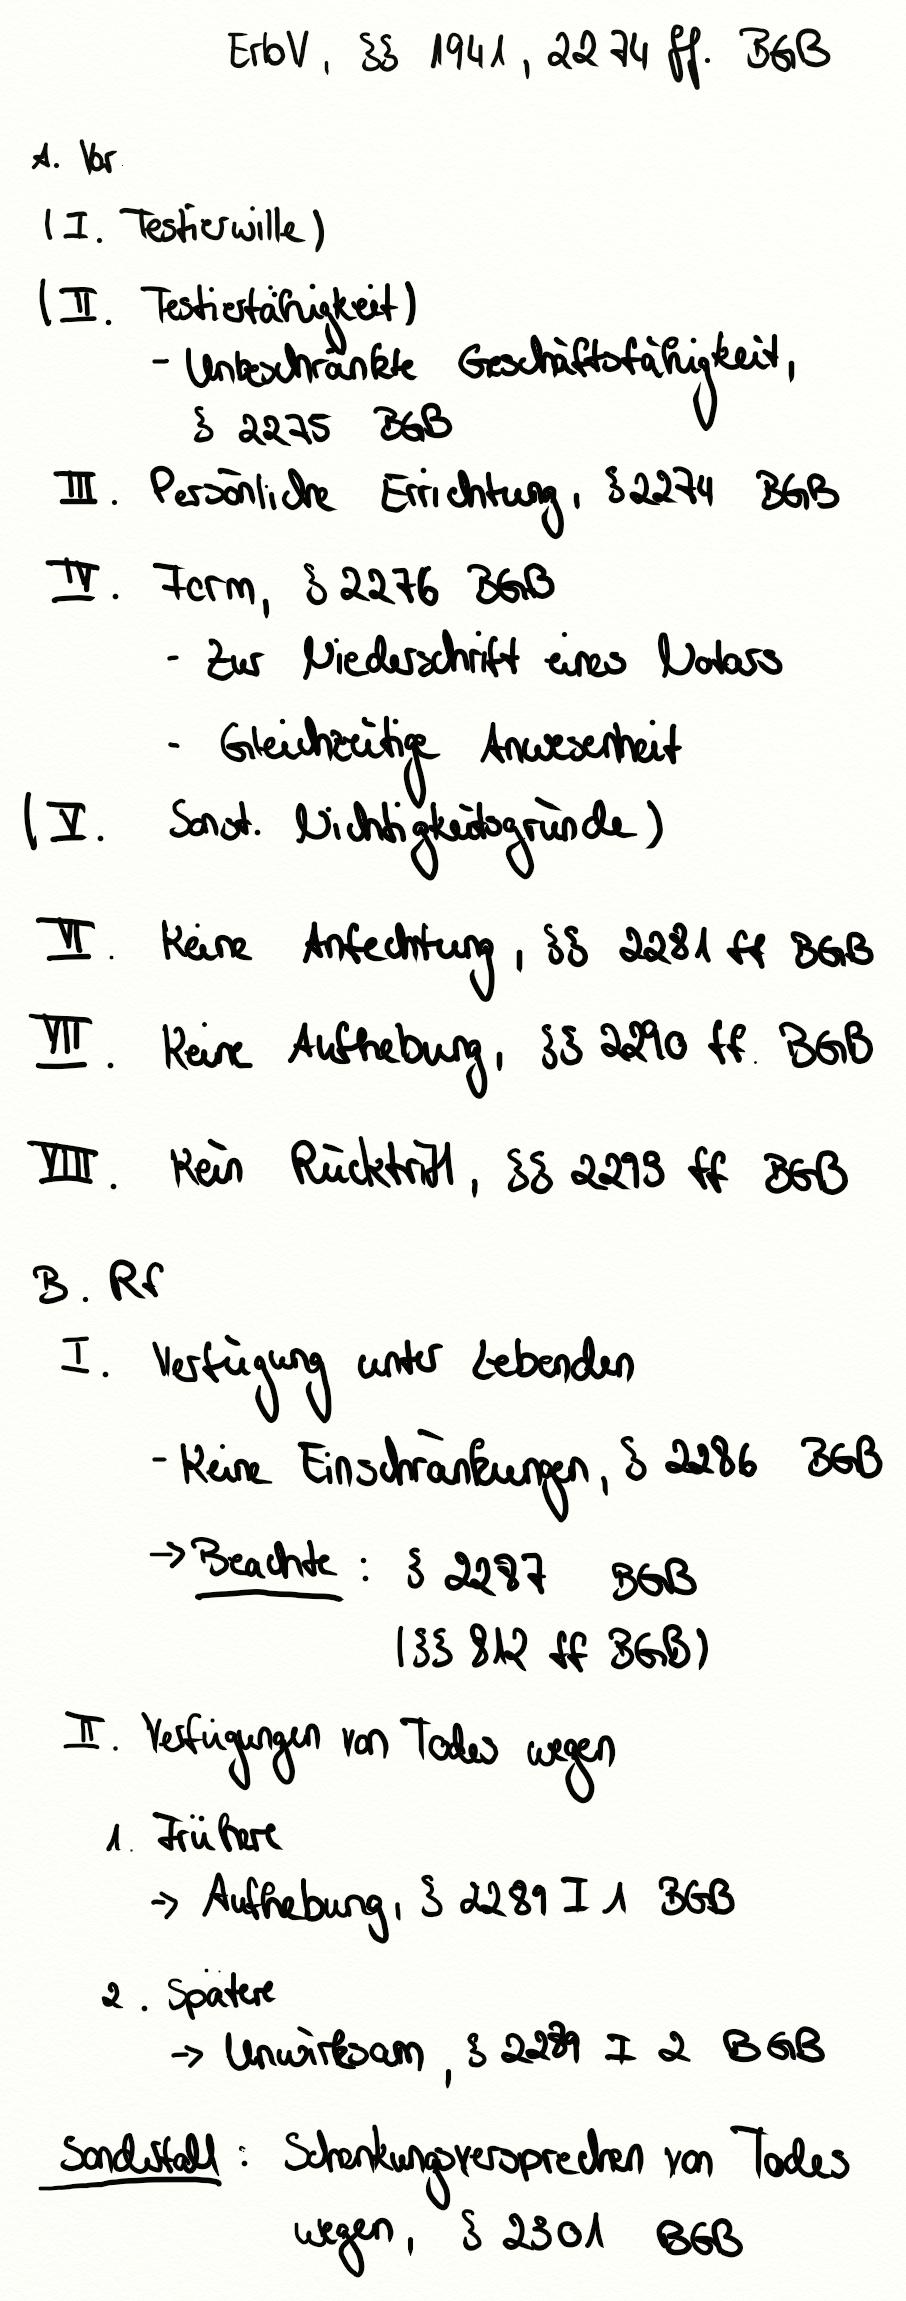 ErbV, §§ 1941, 2274 ff. BGB
A. Vor.
(I. Testierwille)
(II. Testierfähigkeit)
- Unbeschränkte Geschäftsfähigkeit,
§ 2275 BGB
III. Persönliche Errichtung, § 2274 BGB
IV. Form, § 2276 BGB
- Zur Niederschrift eines Notars
- Gleichzeitige Anwesenheit
(V. Sonst. Nichtigkeitsgründe)
VI. Keine Anfechtung, §§ 2281 ff BGB
VII. Keine Aufhebung, §§ 2290 ff. BGB
VIII. Kein Rücktritt, §§ 2293 ff BGB
B. Rf
I. Verfügung unter Lebenden
- Keine Einschränkungen, § 2286 BGB
→ Beachte: § 2287 BGB
(§§ 812 ff BGB)
II. Verfügungen von Todes wegen
1. Frühere
→ Aufhebung, § 2289 I 1 BGB
2. Spätere
→ Unwirksam, § 2289 I 2 BGB
Sonderfall: Schenkungsversprechen von Todes
wegen, § 2301 BGB